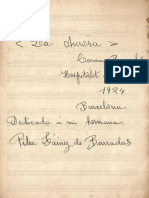 < La Aurora >
Hospitalet
1924
Barcelona
Dedicada á mi hermana
Pilar Sáinz de Barradas